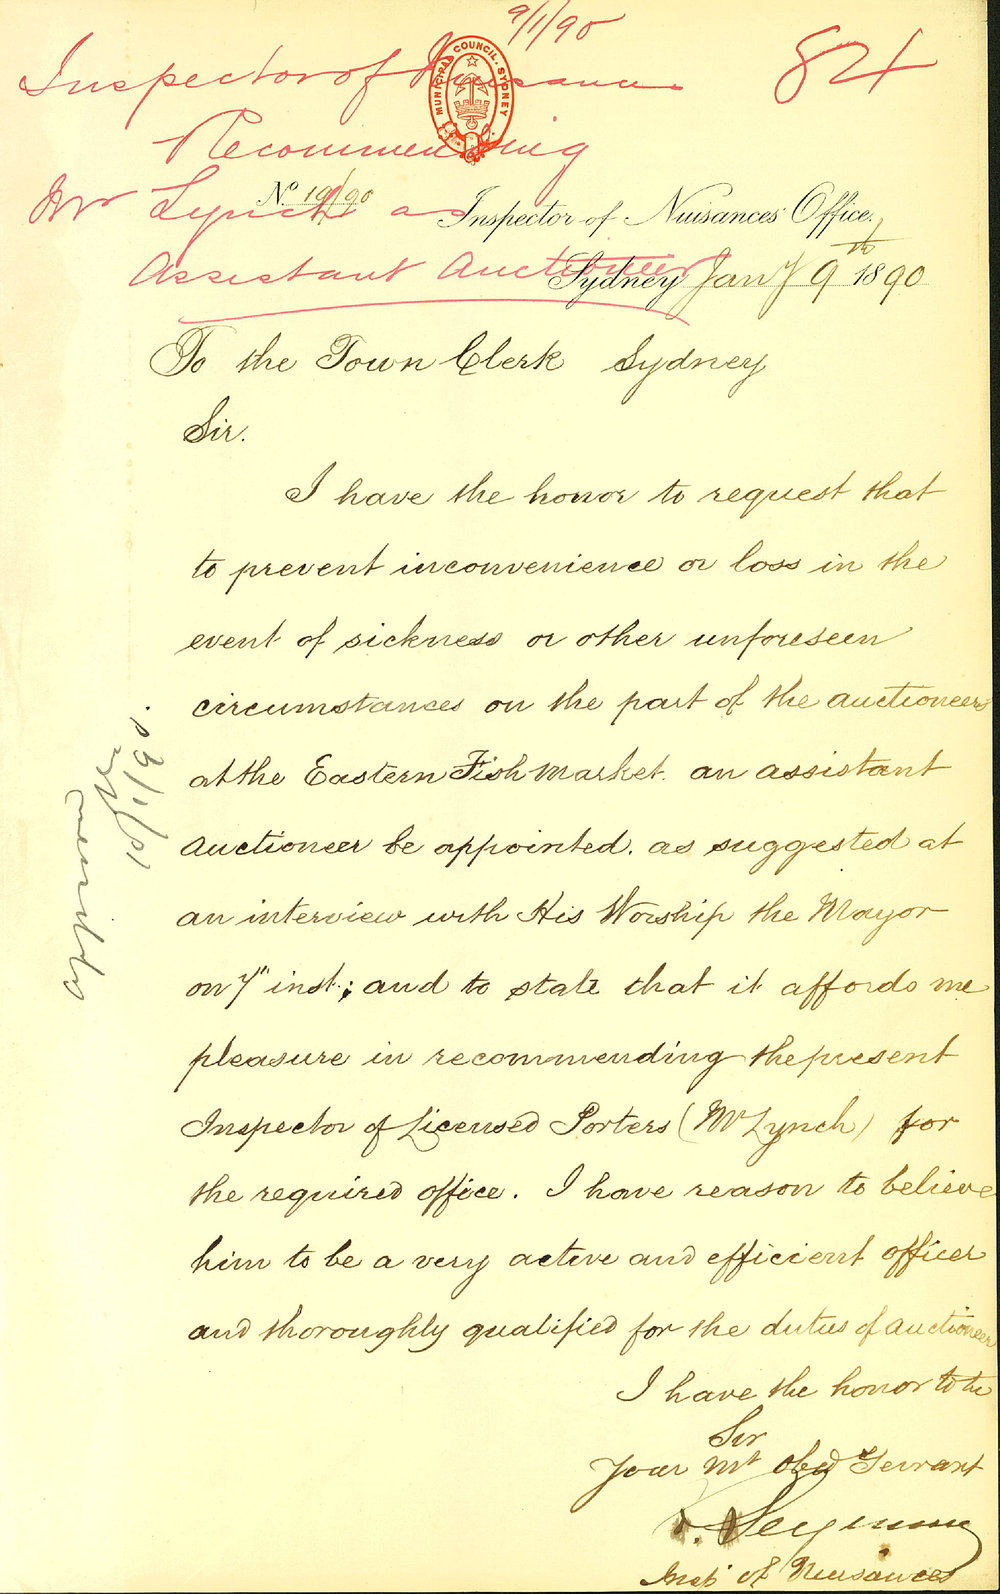 9/1/90
Inspector of Nuisances
84
MUNICIPAL COUNCIL. SYDNEY
Recommending
Mr Lynch as
Assistant Auctioneer
No. 19/90
Inspector of Nuisances' Office,
Sydney Jany 9th 1890
To the Town Clerk Sydney
Sir.
I have the honor to request that
to prevent inconvenience or loss in the
event of sickness or other unforeseen
circumstances on the part of the auctioneers
at the Eastern Fish Market. an assistant
auctioneer be appointed. as suggested at
an interview with His Worship the Mayor
on 7" inst.; and to state that it affords me
pleasure in recommending the present
Inspector of Licensed Porters (Mr Lynch) for
the required office. I have reason to believe
him to be a very active and efficient officer
and thoroughly qualified for the duties of auctioneer
I have the honor to be
Sir
Your Mt Obed Servant
Seymour
Insp of Nuisances
10/1/90.